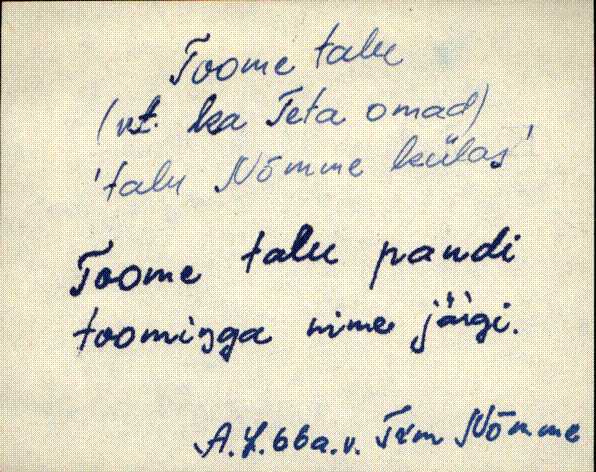 Toome talu
(vt. ka Teta omad)
'talu Nõmme külas'
Toome talu pandi
toominga nime järgi.
A.L. 66a.v. Trm Nõmme